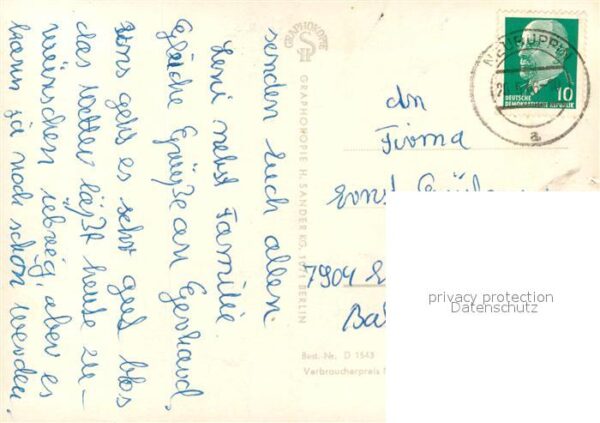 senden Euch allen.
Leni nebst Familie.
Gleiche Grüße an Gerhard.
uns gehts es sehr gut blos
das Wetter läßt heute zu-
wünschen übrig, aber es
kann ja noch schön werden.
GRAPHOKOPIE
GRAPHOKOPIE H. SANDER KG, 1071 BERLIN
NEURUPPIN
a
DEUTSCHE
DEMOKRATISCHE REPUBLIK
10
An
Firma
Ernst
7904
Best.-Nr. D 1548
Verbraucherpreis
privacy protection
Datenschutz